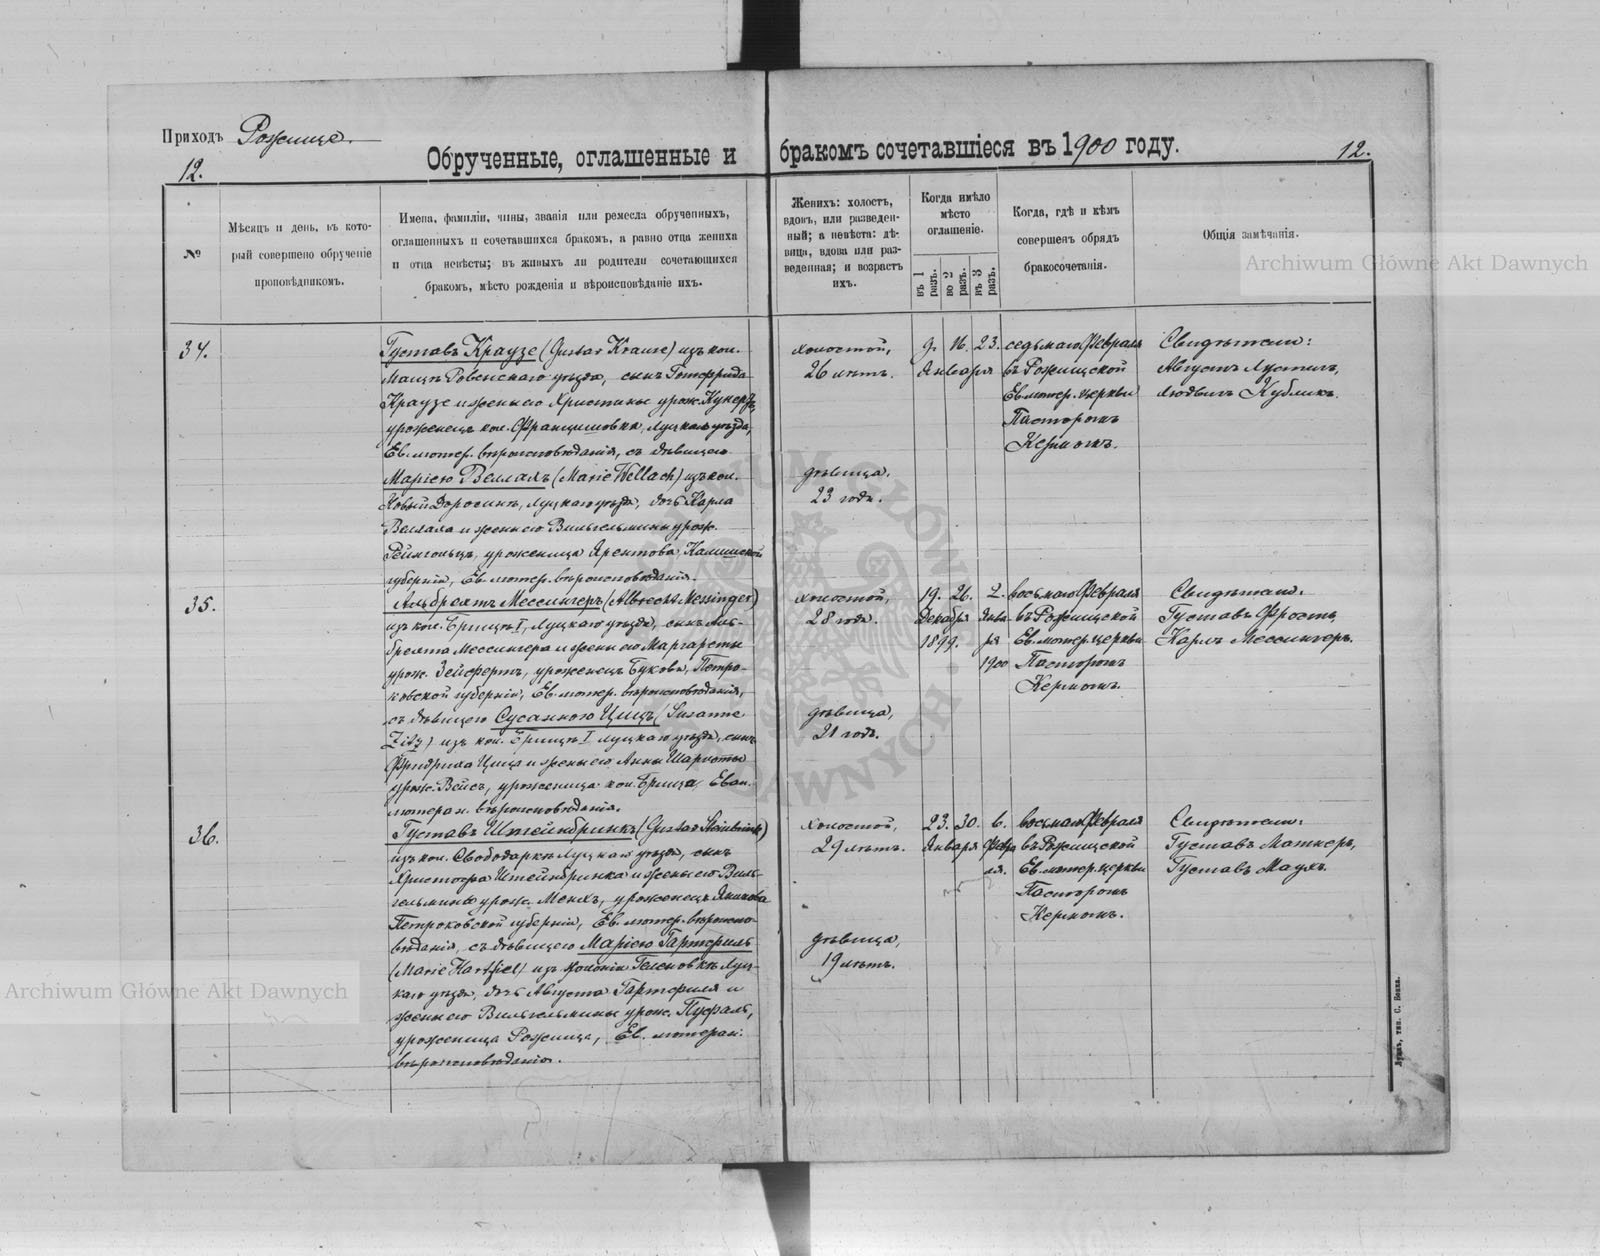 Приходъ Рожище.
12.
Обрученные, оглашенные и бракомъ сочетавшіеся въ 1900 году.
12.
№
Мѣсяцъ и день, въ кото-
рый совершено обрученіе
проповѣдникомъ.
Имена, фамиліи, чины, званія или ремесла обрученныхъ,
оглашенныхъ и сочетавшихся бракомъ, а равно отца жениха
и отца невѣсты; въ живыхъ ли родители сочетающихся
бракомъ, мѣсто рожденія и вѣроисповѣданіе ихъ.
Женихъ: холостъ,
вдовъ, или разведен-
ный; а невѣста: дѣ-
вица, вдова или раз-
веденная; и возрастъ
ихъ.
Когда имѣло
мѣсто
оглашеніе.
въ 1
разъ.
во 2
разъ.
въ 3
разъ.
Когда, гдѣ и кѣмъ
совершенъ обрядъ
бракосочетанія.
Общія замѣчанія.
34.
Густавъ Краузе (Gustav Krause) изъ кол.
Ровенскаго уѣзда, сынъ Готфрида
Краузе и жены его Христины урож.
уроженецъ кол. Францишовка, Луцкаго уѣзда,
Ев. лютер. вѣроисповѣданія, съ дѣвицею
Маріею Веллахъ (Marie Wellach) изъ кол.
Новый Доросинъ, Луцкаго уѣзда, дочь Карла
Веллаха и жены его Вильгельмины урож.
уроженица Калишской
губерніи, Ев. лютер. вѣроисповѣданія.
холостой,
26 лѣтъ.
дѣвица.
23 года.
9. 16. 23.
Января
седьмаго Февраля
въ Рожищской
Ев. лютер. церкви
Пасторомъ
Кермомъ.
Свидѣтели:
Августъ Лустигъ,
Людвигъ Кубликъ.
35.
Альбрехтъ Мессингеръ (Albrecht Messinger)
изъ кол. I, Луцкаго уѣзда, сынъ Аль-
брехта Мессингера и жены его Маргареты
урож. Зейфертъ, уроженецъ Букова, Петро-
ковской губерніи, Ев. лютер. вѣроисповѣданія,
съ дѣвицею Сусанною Цицъ (Susanne
Zitz) изъ кол. I Луцкаго уѣзда,
Фридриха Цица и жены его Анны Шарлоты
урож. Вейсъ, уроженица кол. Еван.
лютеран. вѣроисповѣданія.
холостой,
28 года.
дѣвица,
21 годъ.
19. 26. 2.
Декабря Янва-
1899. ря
1900
восьмаго Февраля
въ Рожищской
Ев. лютер. церкви
Пасторомъ
Кермомъ.
Свидѣтели:
Густавъ Фростъ,
Карлъ Мессингеръ.
36.
Густавъ Штейнбринкъ (Gustav Steinbrink)
изъ кол. Свободаркѣ Луцкаго уѣзда, сынъ
Христофа Штейнбринка и жены его Виль-
гельмины урож. Монхъ, уроженецъ
Петроковской губерніи, Ев. лютер. вѣроиспо-
вѣданія, съ дѣвицею Маріею Гартфиль
(Marie Hartfiel) изъ колоніи Геленовкѣ Луц-
каго уѣзда, дочь Августа Гартфиля и
жены его Вильгельмины урож. Пуфаль,
уроженица Рожища, Ев. лютеран.
вѣроисповѣданія.
холостой,
29 лѣтъ.
дѣвица,
19 лѣтъ.
23. 30. 6.
Января Февра
ля.
восьмаго Февраля
въ Рожищской
Ев. лютер. церкви
Пасторомъ
Кермомъ.
Свидѣтели:
Густавъ Матнеръ,
Густавъ Маухъ.
Луцкъ, тип. С. Бокка.
Archiwum Główne Akt Dawnych
Archiwum Główne Akt Dawnych
ARCHIWUM GŁÓWNE AKT DAWNYCH